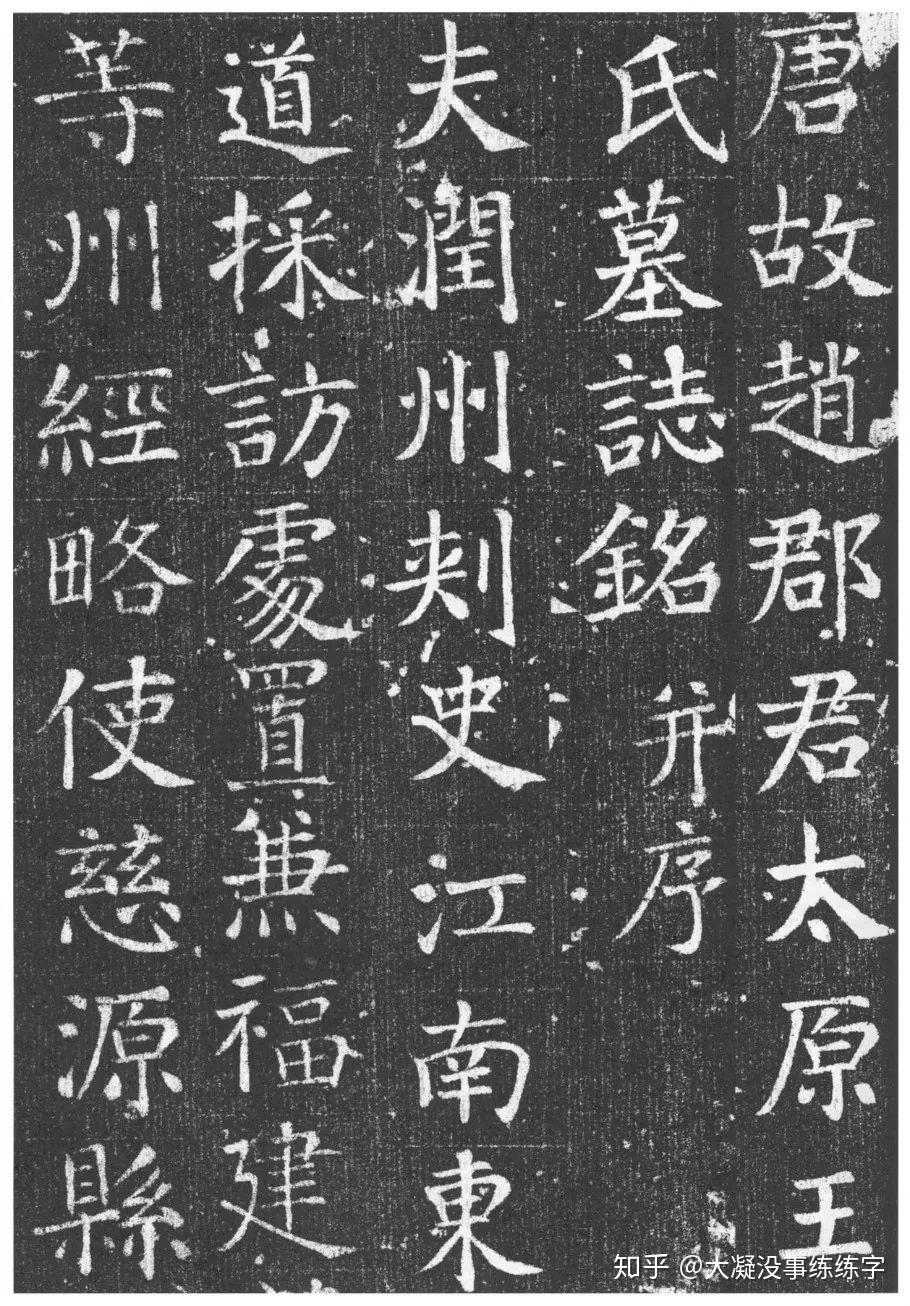 唐故趙郡君太原王
氏墓誌銘并序
夫潤州刺史江南東
道採訪處置兼福建
等州經略使慈源縣
知乎 @大凝没事练练字